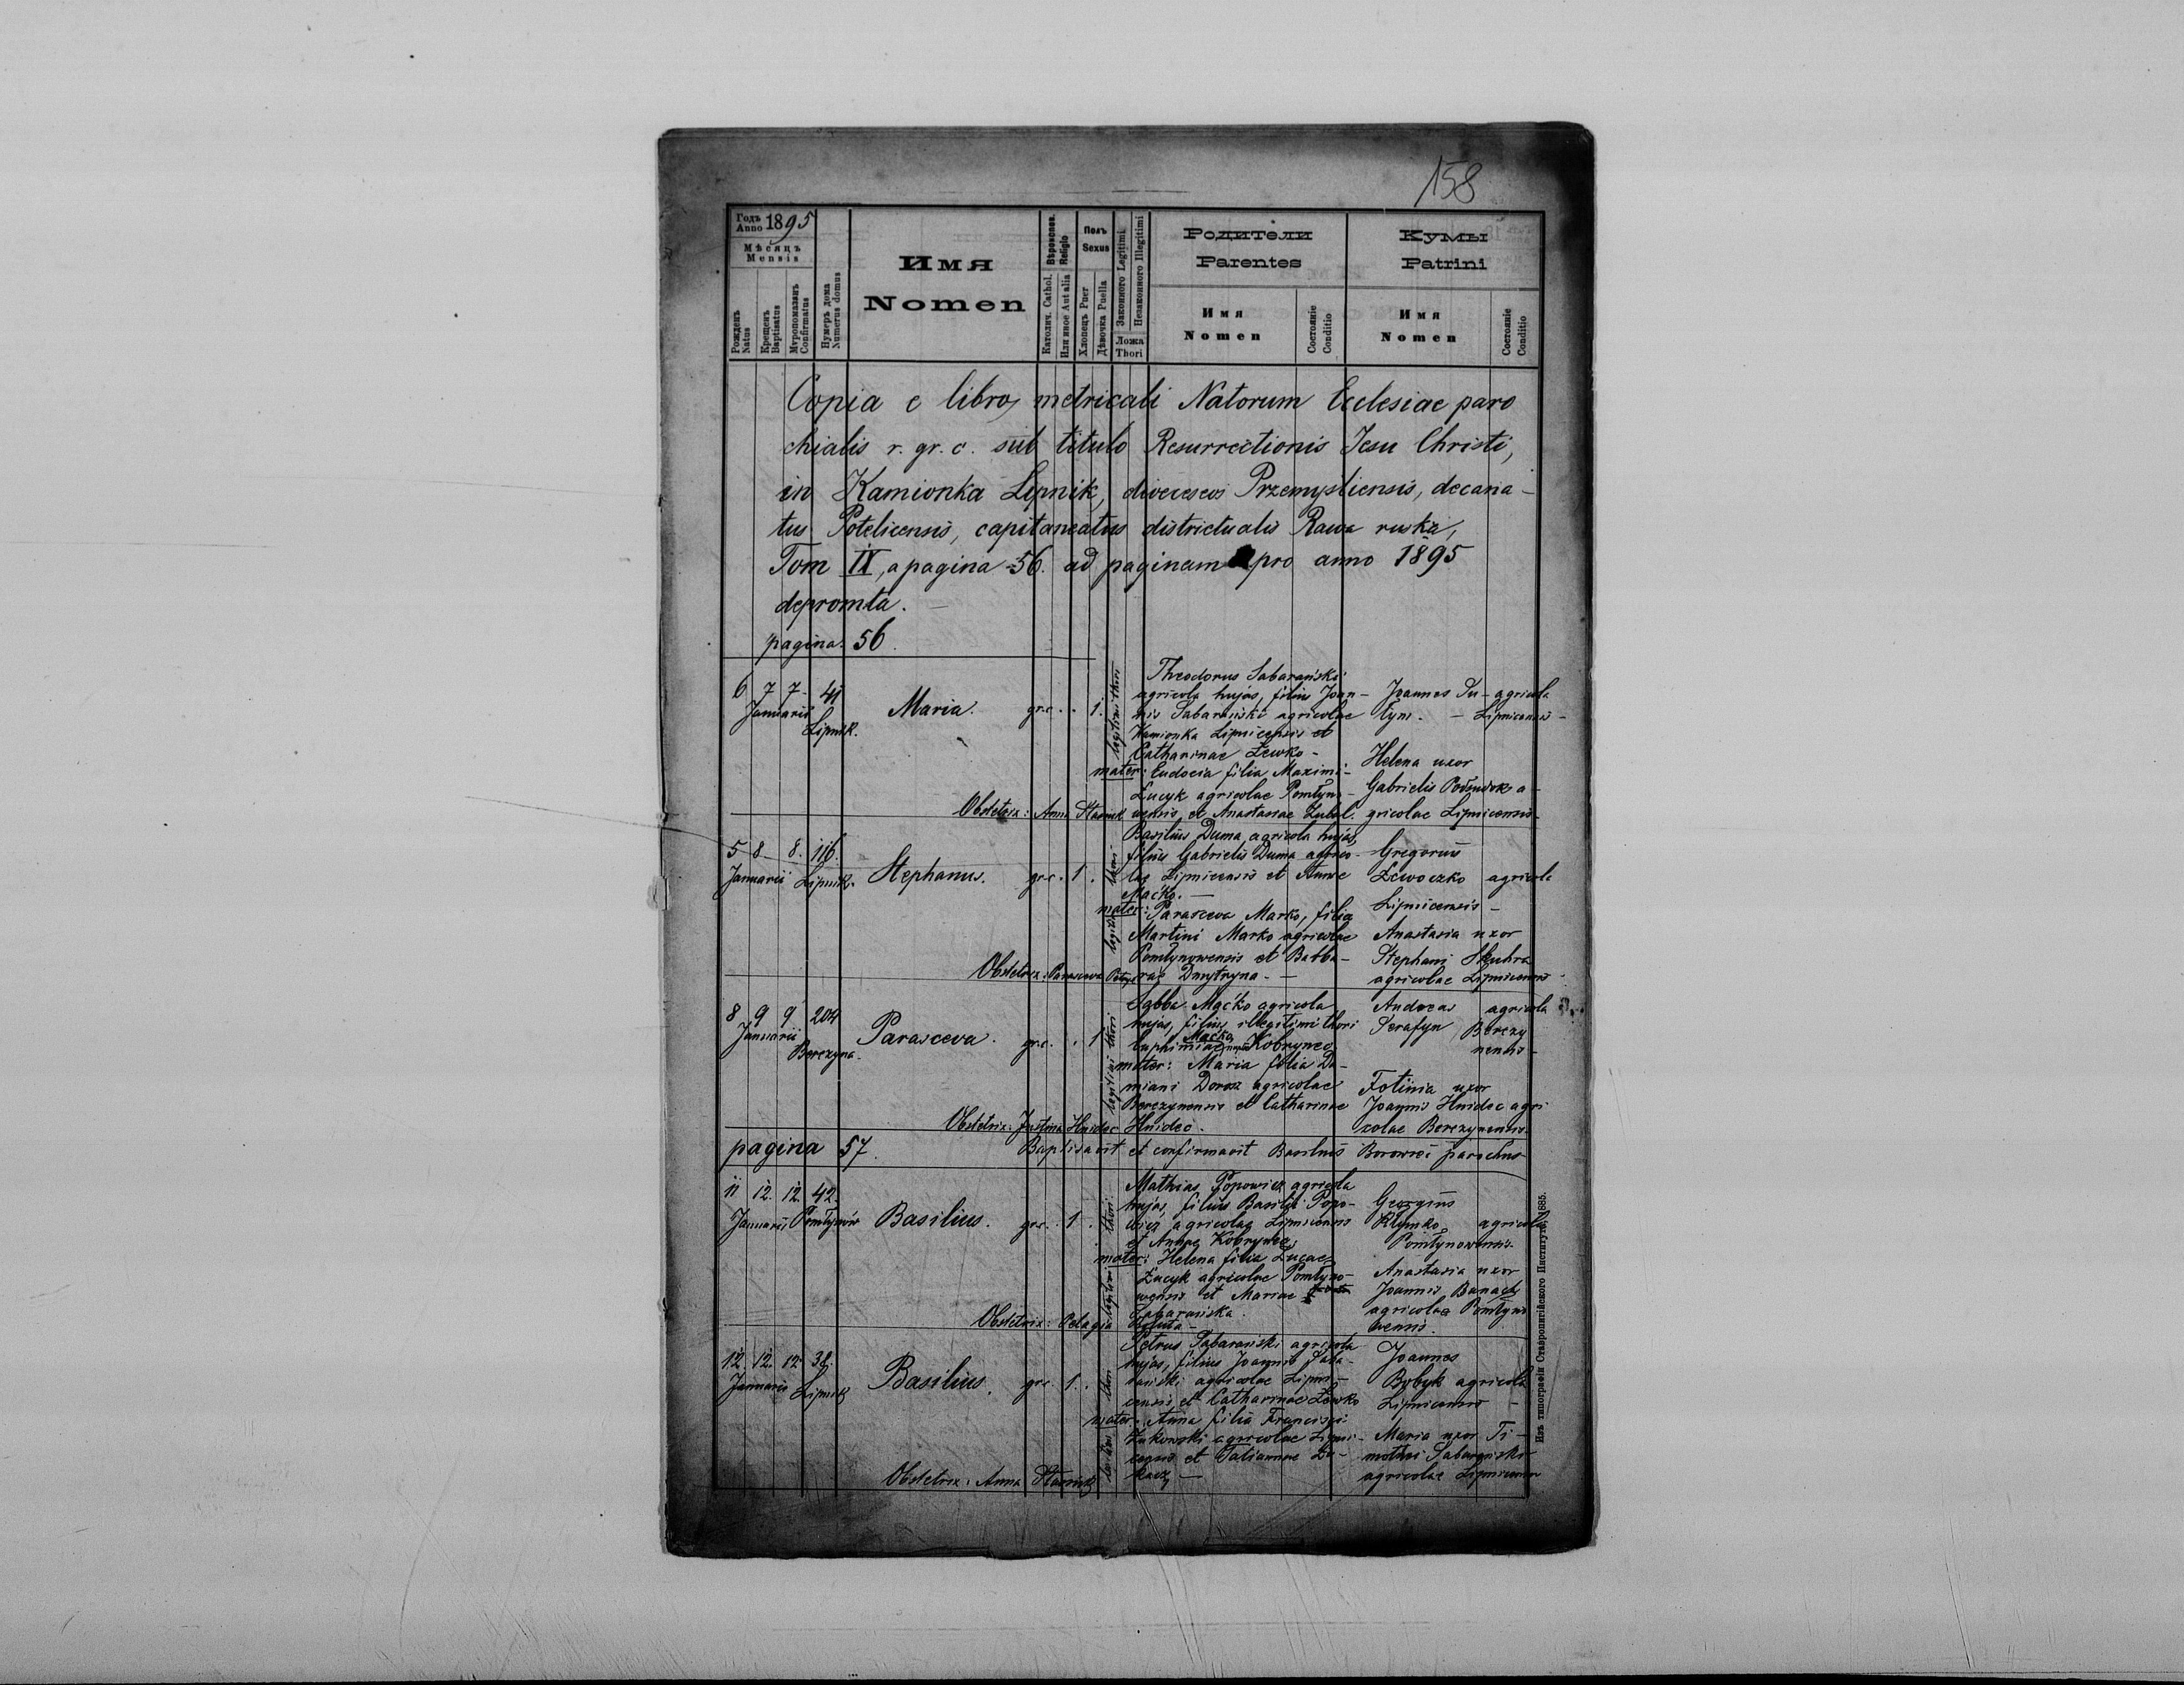 158
Годъ
Anno 1895
Мѣсяцъ
Mensis
Рожденъ
Natus
Крещенъ
Baptisatus
Мѵропомазанъ
Confirmatus
Нумеръ дома
Numerus domus
Имя
Nomen
Вѣроиспов.
Religio
Католич. Cathol.
Или иное Aut alia
Полъ
Sexus
Хлопецъ Puer
Дѣвочка Puella
Законного Legitimi
Незаконного Illegitimi
Ложа
Thori
Родители
Parentes
Имя
Nomen
Состояніе
Conditio
Кумы
Patrini
Имя
Nomen
Состояніе
Conditio
Copia e libro metricali Natorum Ecclesiae paro
chialis r. gr. c. sub titulo Resurrectionis Jesu Christi,
in Kamionka Lipnik, dioeceseos Przemysliensis, decana-
tus Potelicensis, capitaneatus districtualis Rawa ruska,
Tom IV, a pagina 56. ad paginam pro anno 1895
depromta.
pagina 56.
6 7 7 41
Januarii
Lipnik.
Maria. gr.c. 1.
legitimi thori
Theodorus Sabarański
agricola hujas, filius Joan-
nis Sabarański agricolae
Kamionka Lipnicensis et
Catharinae Lewko-
mater: Eudocia filia Maximi-
Łucyk agricolae Pomłyno-
wensis et Anastasiae Zubal.
Joannes - agricola
- Lipnicensis -
Helena uxor
Gabrielis a-
gricolae Lipnicensis-
Obstetrix: Anna Stasiuk
5 8 8. 116.
Januarii Lipnik.
Stephanus. gr.c. 1.
legitimi thori
Basilius Duma agricola hujas,
filius Gabrielis Duma agrico-
lae Lipnicensis et Annae
Maćko.-
mater: Parasceva Marko, filia
Martini Marko agricolae
Pomłynowensis et Barba-
rae Dmytryna.-
Gregorius
Lewoczko agricola
Lipnicensis-
Anastasia uxor
Stephani Skuhra
agricolae Lipnicensis
Obstetrix: Parasceva
8 9 9 204
Januarii
Berezyna.
Parasceva. gr.c. 1
legitimi thori
Sabba Maćko agricola
hujas, filius illegitimi thori
Euphimiae Maćko Kobryneo
mater: Maria filia Da-
miani Dorosz agricolae
Berezynensis et Catharinae
Hnidec.
Andreas agricola
Serafyn Berezy
nensis-
Fotinia uxor
Joannis Hnidec agri
colae Berezynensis.
Obstetrix: Justina Hnidec
pagina 57.
Baptisavit et confirmavit Basilius Borowicz parochus
11 12. 12. 42.
Januarii Pomłynów
Basilius. gr.c. 1.
legitimi thori
Mathias Popowicz agricola
hujas, filius Basilii Popo-
wicz agricolae Lipnicensis
et Annae Kobryneo.
mater: Helena filia Lucae
Łucyk agricolae Pomłyno-
wensis et Mariae
Sabarańska.
Georgius
Klymko agricola
Pomłynowensis.
Anastasia uxor
Joannis Banach
agricolae Pomłyno
wensis.
Obstetrix: Pelagia
12. 12. 12 38.
Januarii Lipnik
Basilius. gr.c. 1.
legitimi thori
Petrus Sabarański agricola
hujas, filius Joannis Saba-
rański agricolae Lipni-
censis et Catharinae Lewko
mater: Anna filia Francisci
Żukowski agricolae Lipni-
censis et Tatiannae
Joannes
Bobyk agricola
Lipnicensis -
Maria uxor Ti-
mothei Sabarański
agricolae Lipnicensis
Obstetrix: Anna Stasiuk
Изъ типографіи Ставропигійского Института, 1885.